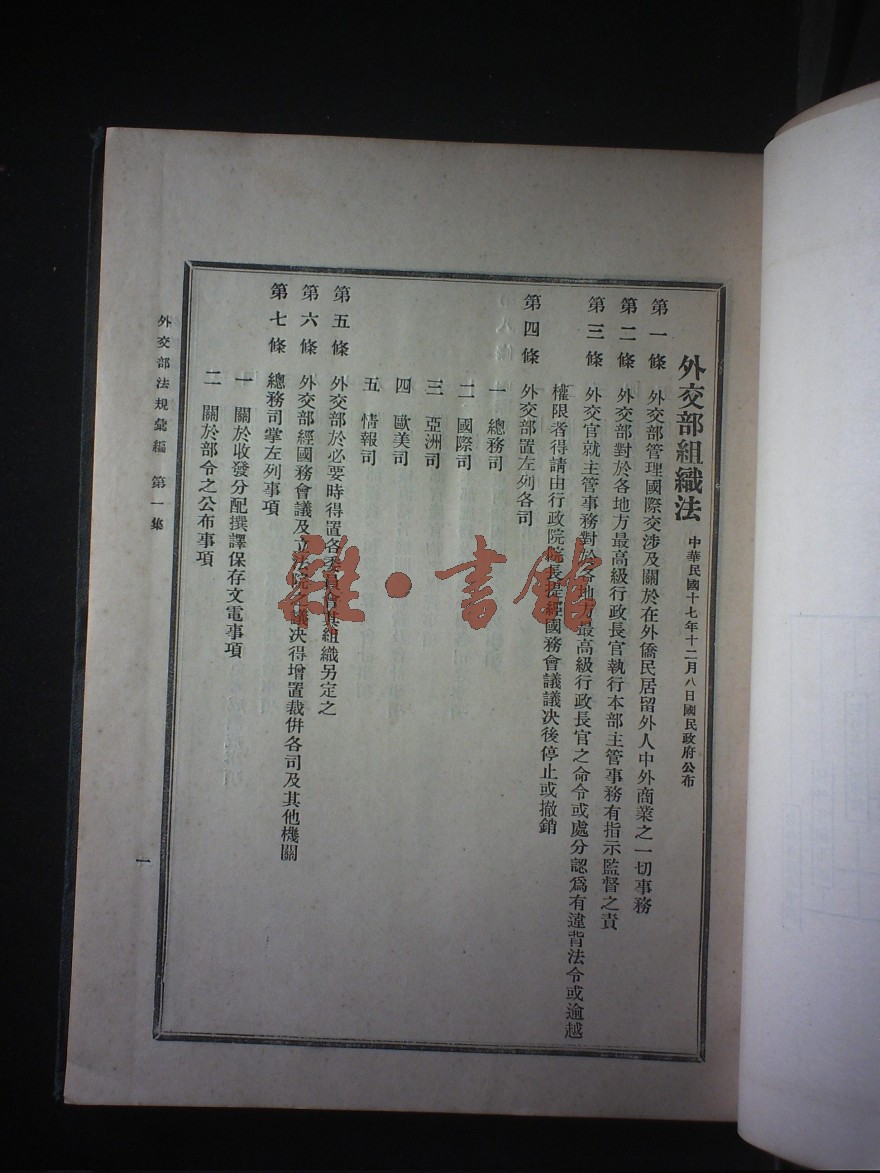 外交部組織法 中華民國十七年十二月八日國民政府公布
第一條 外交部管理國際交涉及關於在外僑民居留外人中外商業之一切事務
第二條 外交部對於各地方最高級行政長官執行本部主管事務有指示監督之責
第三條 外交官就主管事務對於各地方最高級行政長官之命令或處分認爲有違背法令或逾越
權限者得請由行政院院長提經國務會議議決後停止或撤銷
第四條 外交部置左列各司
一 總務司
二 國際司
三 亞洲司
四 歐美司
五 情報司
第五條 外交部於必要時得置各委員會其組織另定之
第六條 外交部經國務會議及立法院之議決得增置裁併各司及其他機關
第七條 總務司掌左列事項
一 關於收發分配撰譯保存文電事項
二 關於部令之公布事項
外交部法規彙編 第一集
一
雜·書館